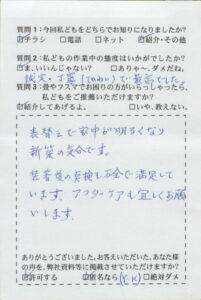 質問1:今回私どもをどちらでお知りになりましたか?
☑チラシ □電話 □ネット ☑紹介・その他
質問2:私どもの作業中の態度はいかがでしたか?
□ま、いいんじゃない □ありゃ〜、ダメだね。
誠実・丁寧(ていねい)で最高でした。
質問3:畳やフスマでお困りの方がいらっしゃったら、
私どもをご推薦いただけますか?
☑紹介してあげるよ。 □いや、教えない。
表替えで家中が明るくなり
新築の気分です。
している
います。アフターケアも宜しくお願
いします。
ありがとうございました。お答えいただいた、あなた様
の声を、弊社資料等に掲載させていただけますか?
☑許可する ☑匿名なら(Y.K) □絶対ダメ